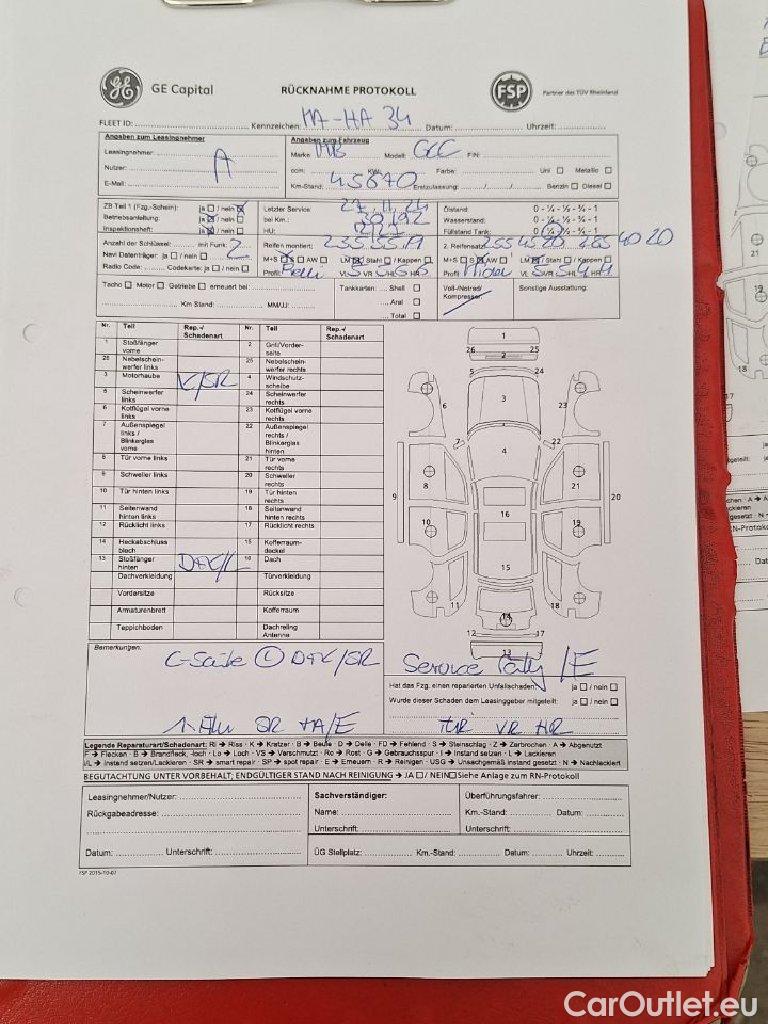 GE Capital
RÜCKNAHME PROTOKOLL
FSP
Partner des TÜV Rheinland
FLEET ID: Kennzeichen: MA-HA 34 Datum: Uhrzeit:
Angaben zum Leasingnehmer
Leasingnehmer:
Nutzer: A
E-Mail:
Angaben zum Fahrzeug
Marke MB Modell: GLC FIN:
ccm: KW: Farbe: Uni Metallic
Km-Stand: 45870 Erstzulassung: / / Benzin Diesel
ZB Teil 1 (Fzg.-Schein): ja / nein
Betriebsanleitung: ja / nein
Inspektionsheft: ja / nein
Letzter Service: 27.11.24
bei Km.: 30192
HU:
Ölstand: 0 - ¼ - ½ - ¾ - 1
Wasserstand: 0 - ¼ - ½ - ¾ - 1
Füllstand Tank: 0 - ¼ - ½ - ¾ - 1
Anzahl der Schlüssel: mit Funk: 2
Navi Datenträger: ja / nein
Radio Code: Codekarte: ja / nein
Reifen montiert: 235 55 19
M+S S AW LM Stahl / Kappen
Profil: Pirelli VL 5 VR 5 HL 5 HR 5
2. Reifensatz: 255 45 20 285 40 20
M+S S AW LM Stahl / Kappen
Profil VL 5 VR 5 HL 4 HR 4
Tacho Motor Getriebe erneuert bei:
Km Stand: MM/JJ:
Tankkarten: Shell
Aral
Total
Voll-/Notrad/
Kompressor
Sonstige Ausstattung:
Nr. Teil Rep.-/ Schadenart Nr. Teil Rep.-/ Schadenart
1 Stoßfänger vorne 2 Grill/Vorderseite
26 Nebelscheinwerfer links 25 Nebelscheinwerfer rechts
3 Motorhaube K/SR 4 Windschutzscheibe
5 Scheinwerfer links 24 Scheinwerfer rechts
6 Kotflügel vorne links 23 Kotflügel vorne rechts
7 Außenspiegel links / Blinkerglas vorne 22 Außenspiegel rechts / Blinkerglas hinten
8 Tür vorne links 21 Tür vorne rechts
9 Schweller links 20 Schweller rechts
10 Tür hinten links 19 Tür hinten rechts
11 Seitenwand hinten links 18 Seitenwand hinten rechts
12 Rücklicht links 17 Rücklicht rechts
14 Heckabschluss blech 15 Kofferraumdeckel
13 Stoßfänger hinten 16 Dach
Dachverkleidung Türverkleidung
Vordersitze Rücksitze
Armaturenbrett Kofferraum
Teppichboden Dachreling Antenne
1
26 25
2
5 24
3
6 23
7 22
4
8 21
9 20
16
10 19
15
11 18
14
12 17
13
Bemerkungen:
Service /E
Hat das Fzg. einen reparierten Unfallschaden: ja / nein
Wurde dieser Schaden dem Leasinggeber mitgeteilt: ja / nein
VR HR
Legende Reparaturart/Schadenart: Ri → Riss · K → Kratzer · B → Beule · D → Delle · FD → Fehlend · S → Steinschlag · Z → Zerbrochen · A → Abgenutzt
F → Flecken · B → Brandfleck, -loch · Lo → Loch · VS → Verschmutzt · Ro → Rost · G → Gebrauchsspur · I → Instand setzen · L → Lackieren
I/L → Instand setzen/Lackieren · SR → smart repair · SP → spot repair · E → Erneuern · R → Reinigen · USG → Unsachgemäß instand gesetzt · N → Nachlackiert
BEGUTACHTUNG UNTER VORBEHALT; ENDGÜLTIGER STAND NACH REINIGUNG → JA / NEIN Siehe Anlage zum RN-Protokoll
Leasingnehmer/Nutzer:
Rückgabeadresse:
Datum: Unterschrift:
Sachverständiger:
Name:
Unterschrift:
Überführungsfahrer:
Km.-Stand: Datum:
Unterschrift:
ÜG Stellplatz: Km.-Stand: Datum: Uhrzeit:
FSP 2015-10-07
CarOutlet.eu